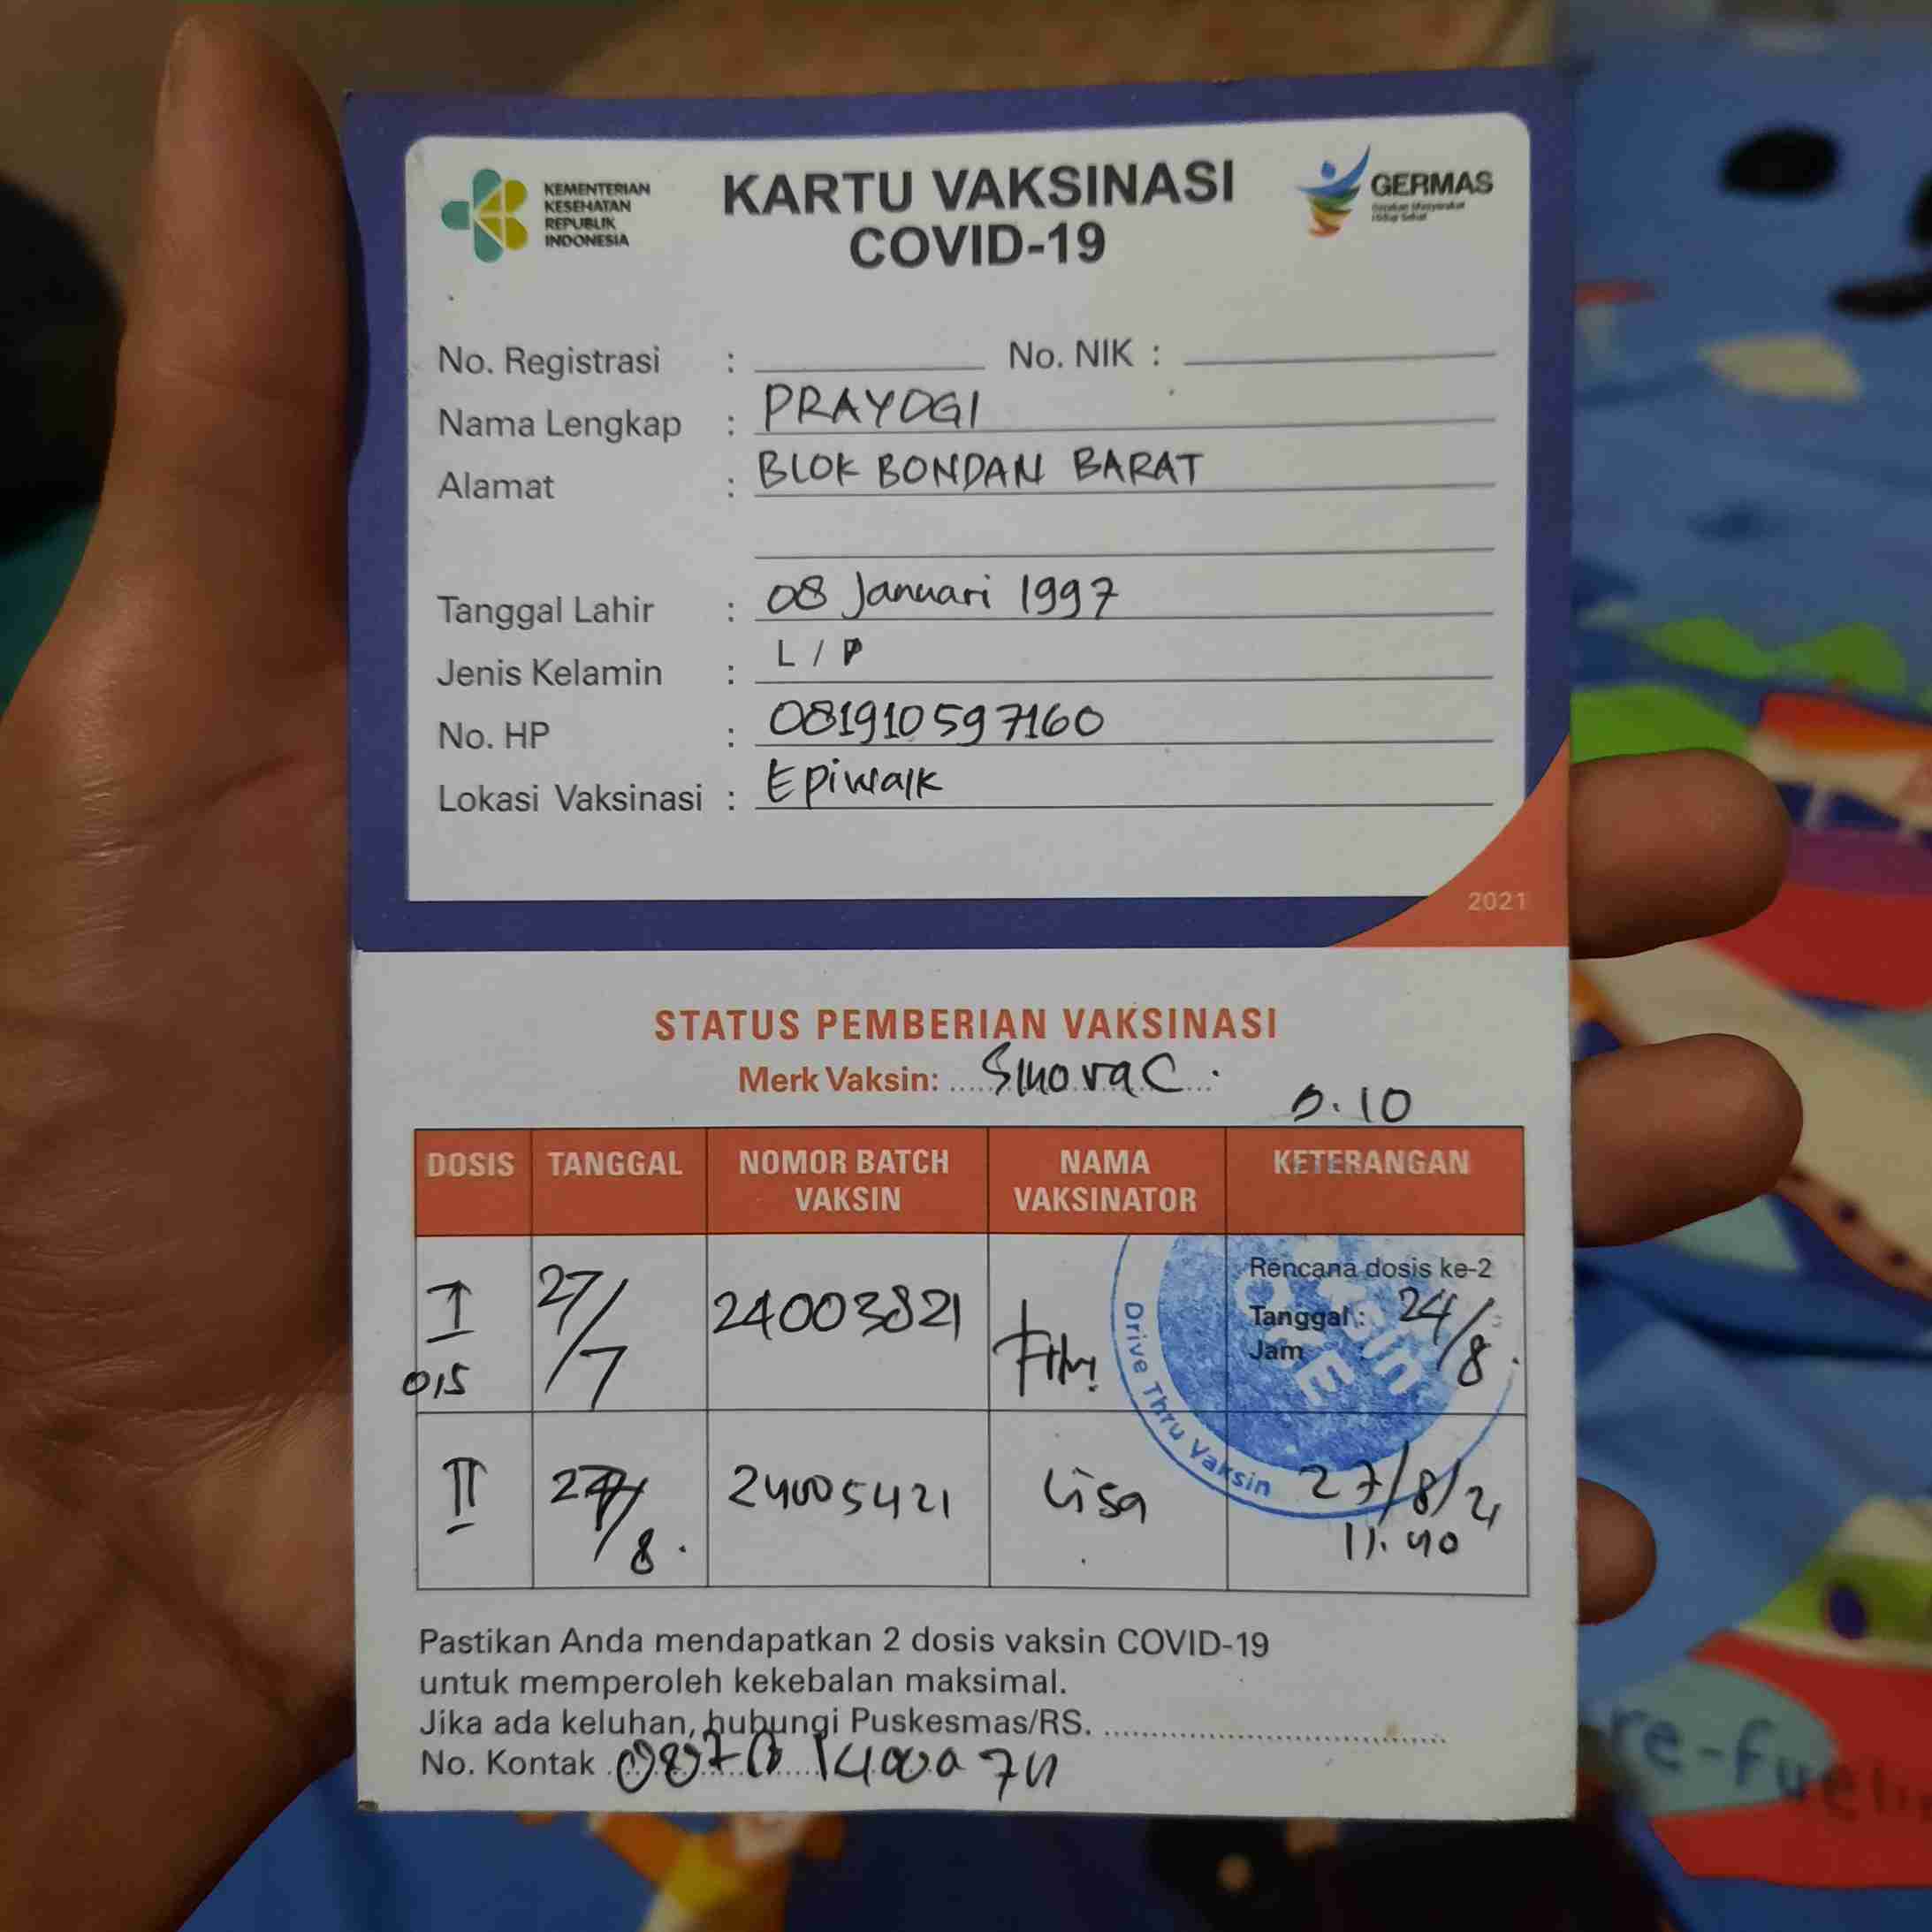 KEMENTERIAN
KESEHATAN
REPUBLIK
INDONESIA
KARTU VAKSINASI
COVID-19
GERMAS
Gerakan Masyarakat
Hidup Sehat
No. Registrasi : No. NIK :
Nama Lengkap : PRAYOGI
Alamat : BLOK BONDAN BARAT
Tanggal Lahir : 08 Januari 1997
Jenis Kelamin : L / P
No. HP : 081910597160
Lokasi Vaksinasi : Epiwalk
2021
STATUS PEMBERIAN VAKSINASI
Merk Vaksin: Sinovac.
DOSIS TANGGAL NOMOR BATCH VAKSIN NAMA VAKSINATOR KETERANGAN
I 0,5 27/7 24003821 Rencana dosis ke-2
Tanggal : 24/8.
Jam
Drive Thru Vaksin
II /8. 24005421 Lisa 27/8/21
11.40
Pastikan Anda mendapatkan 2 dosis vaksin COVID-19
untuk memperoleh kekebalan maksimal.
Jika ada keluhan, hubungi Puskesmas/RS.
No. Kontak